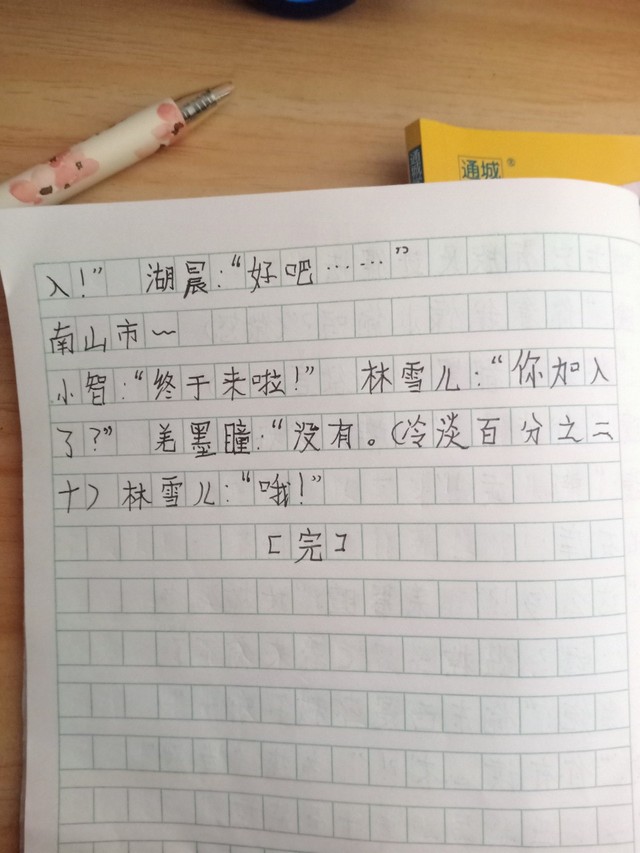 通城®
入！” 湖晨：“好吧……”
南山市~
小智：“终于来啦！” 林雪儿：“你加入
了？” 羌墨瞳：“没有。（冷淡百分之二
十）林雪儿：“哦！”
[完]